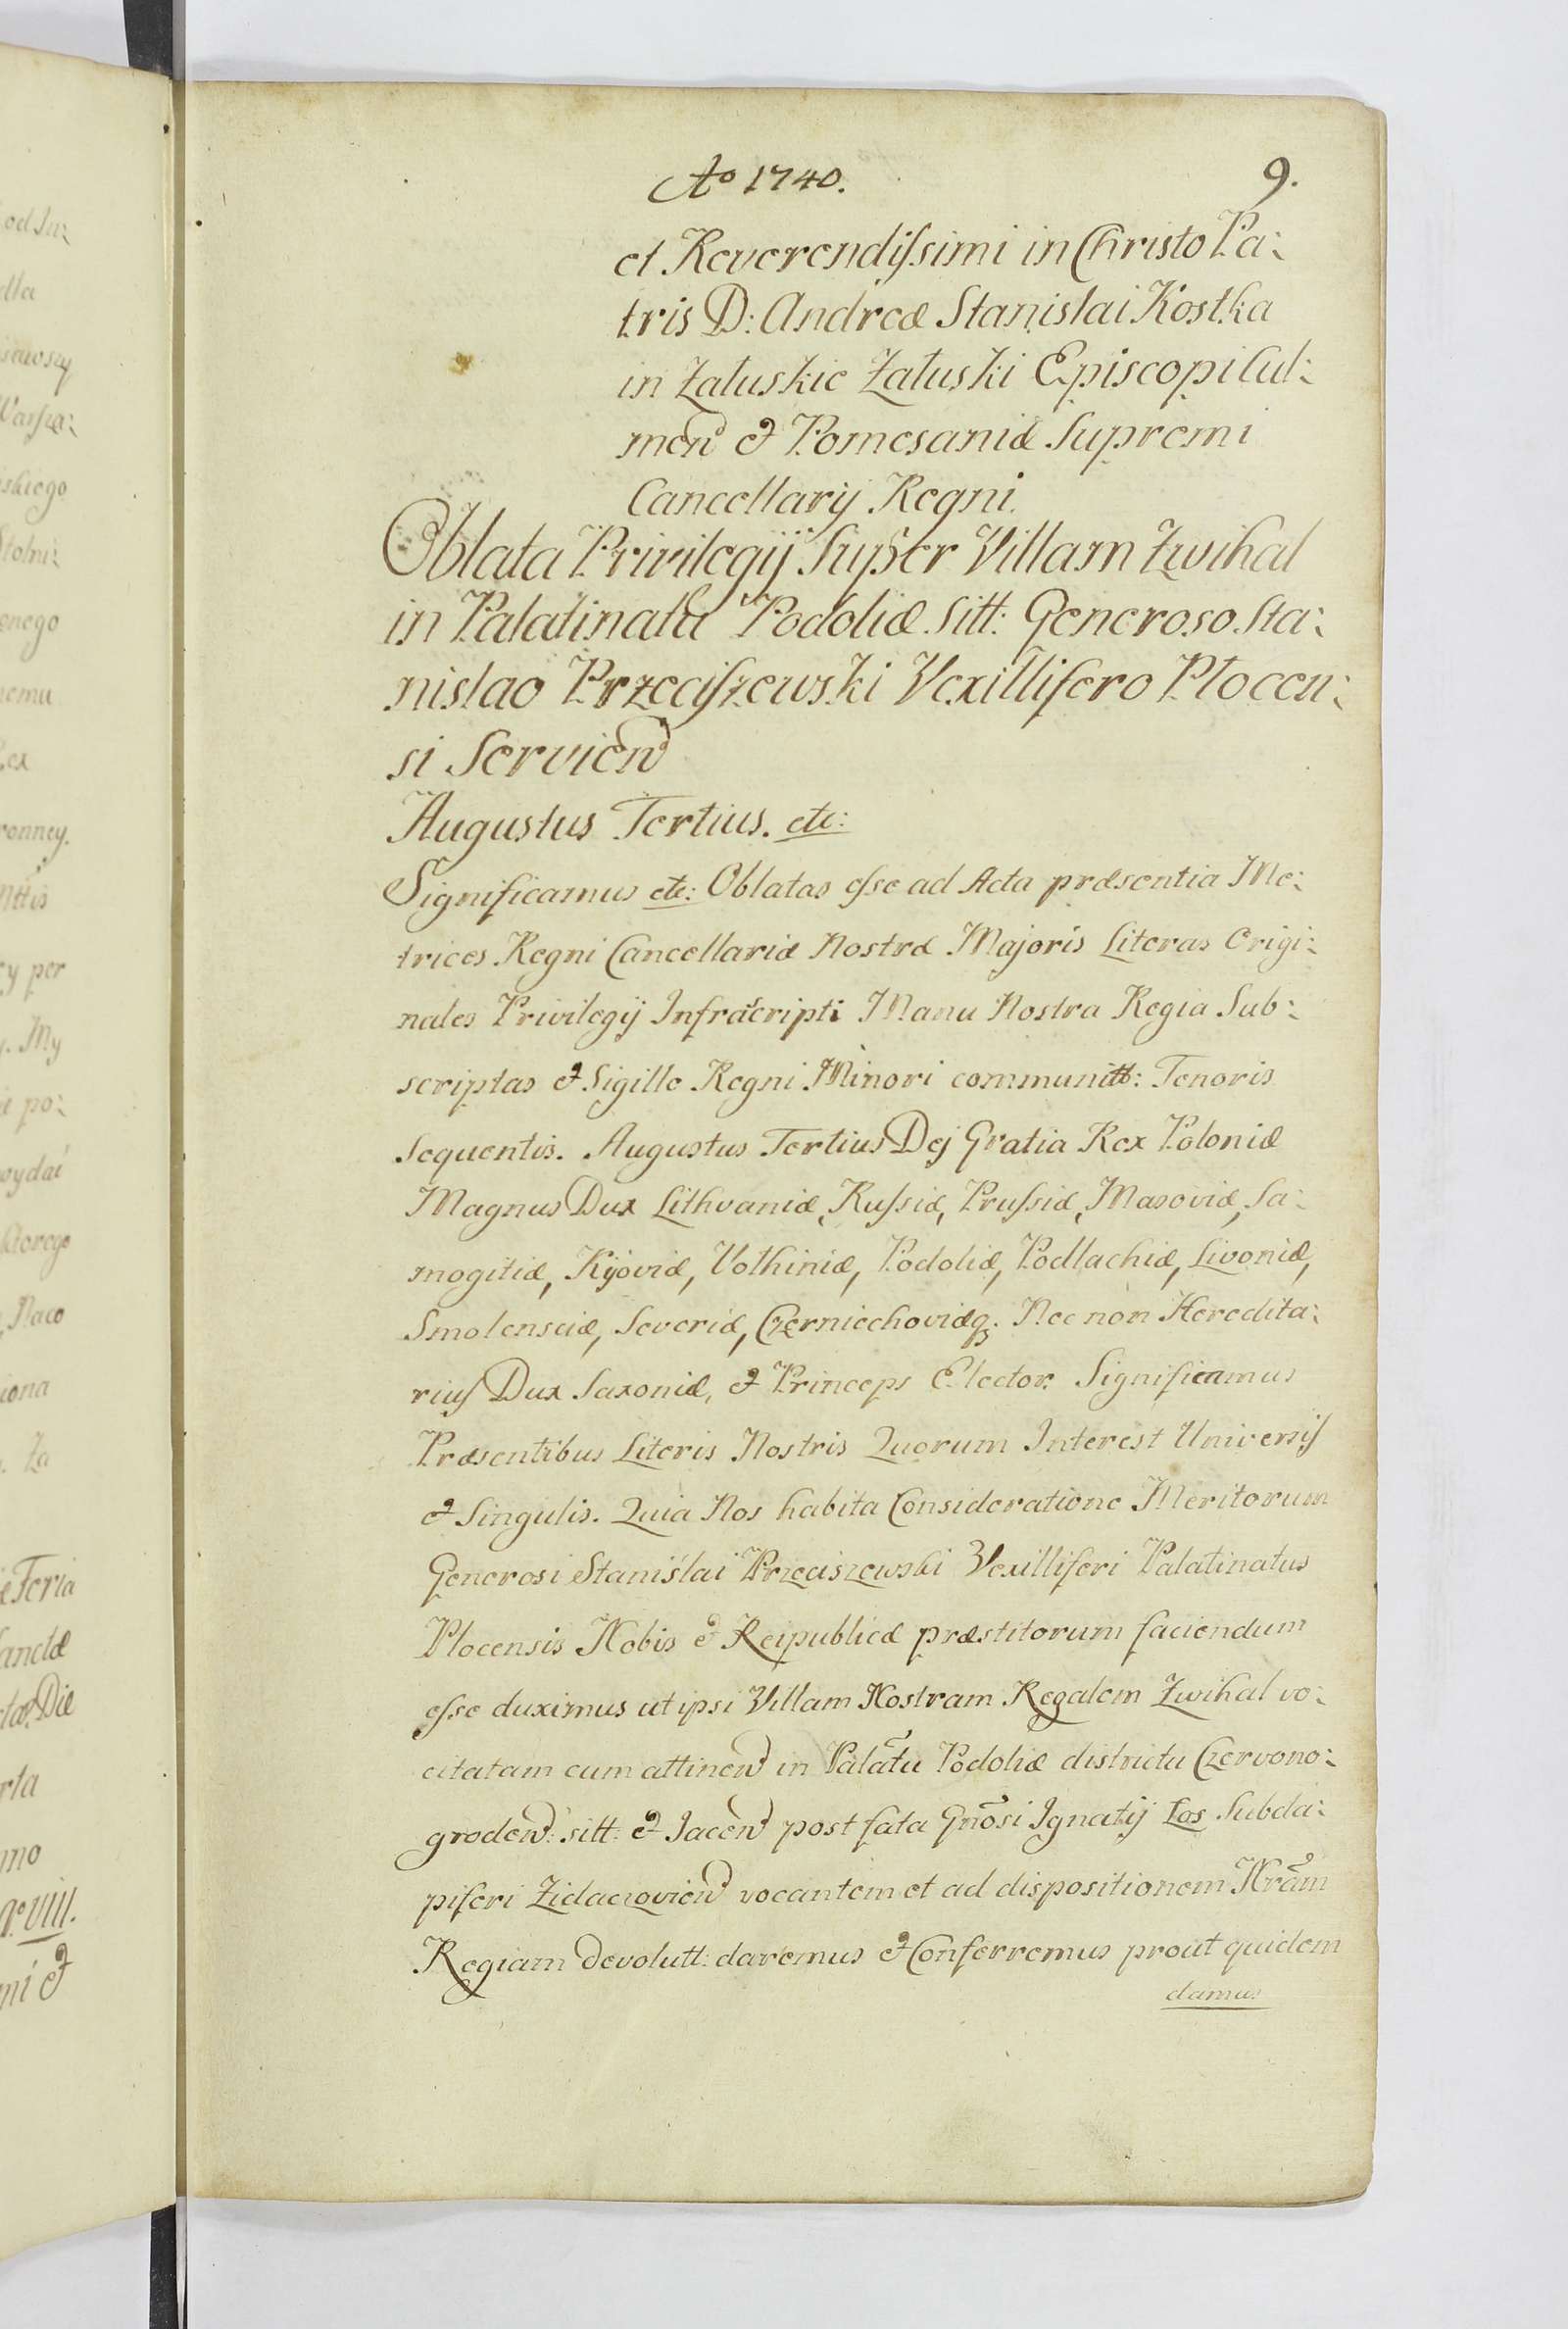 Ao 1740.
9.
et Reverendissimi in Christo Pa:
tris D: Andreæ Stanislai Kostka
in Załuskie Załuski Episcopi Cul:
men̄ & Pomesaniæ Supremi
Cancellarij Regni.
Oblata Privilegij Super Villam Zwihal
in Palatinatu Podoliæ Sitt: Generoso Sta:
nislao Przeciszewski Vexillifero Płocen:
si Servien̄
Augustus Tertius. etc:
Significamus etc: Oblatas esse ad Acta præsentia Me:
trices Regni Cancellariæ Nostræ Majoris Literas Origi:
nales Privilegij Infrascripti Manu Nostra Regia Sub:
scriptas & Sigillo Regni Minori communitt: Tenoris
sequentis. Augustus Tertius Dej Gratia Rex Poloniæ
Magnus Dux Lithvaniæ, Russiæ, Prussiæ, Masoviæ, Sa:
mogitiæ, Kijoviæ, Volhiniæ, Podoliæ, Podlachiæ, Livoniæ,
Smolensciæ, Severiæ, Czerniechoviæq. Nec non Heredita:
rius Dux Saxoniæ, & Princeps Elector. Significamus
Præsentibus Literis Nostris Quorum Interest Universis
& Singulis. Quia Nos habita Consideratione Meritorum
Generosi Stanislai Przeciszewski Vexilliferi Palatinatus
Plocensis Nobis & Reipublicæ præstitorum faciendum
esse duximus ut ipsi Villam Nostram Regalem Zwihal vo:
citatam cum attinen̄ in Palātu Podoliæ districtu Czervono:
groden̄: sitt: & Jacen̄ post fata Gnōsi Ignatij Łos Subda:
piferi Zidaczovien̄ vocantem et ad dispositionem Nrām
Regiam devolutt: daremus & Conferremus prout quidem
damus